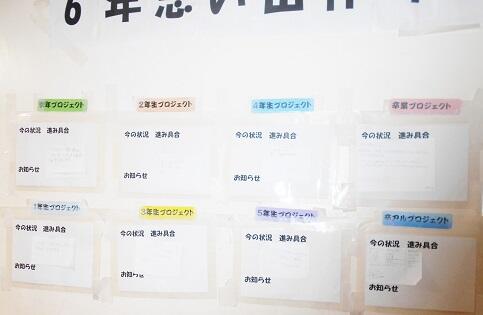 6年思い出作り
2年生プロジェクト
4年生プロジェクト
卒業プロジェクト
今の状況 進み具合
お知らせ
今の状況 進み具合
お知らせ
今の状況 進み具合
お知らせ
今の状況 進み具合
お知らせ
1年生プロジェクト
3年生プロジェクト
5年生プロジェクト
卒アルプロジェクト
今の状況 進み具合
お知らせ
今の状況 進み具合
お知らせ
今の状況 進み具合
お知らせ
今の状況 進み具合
お知らせ